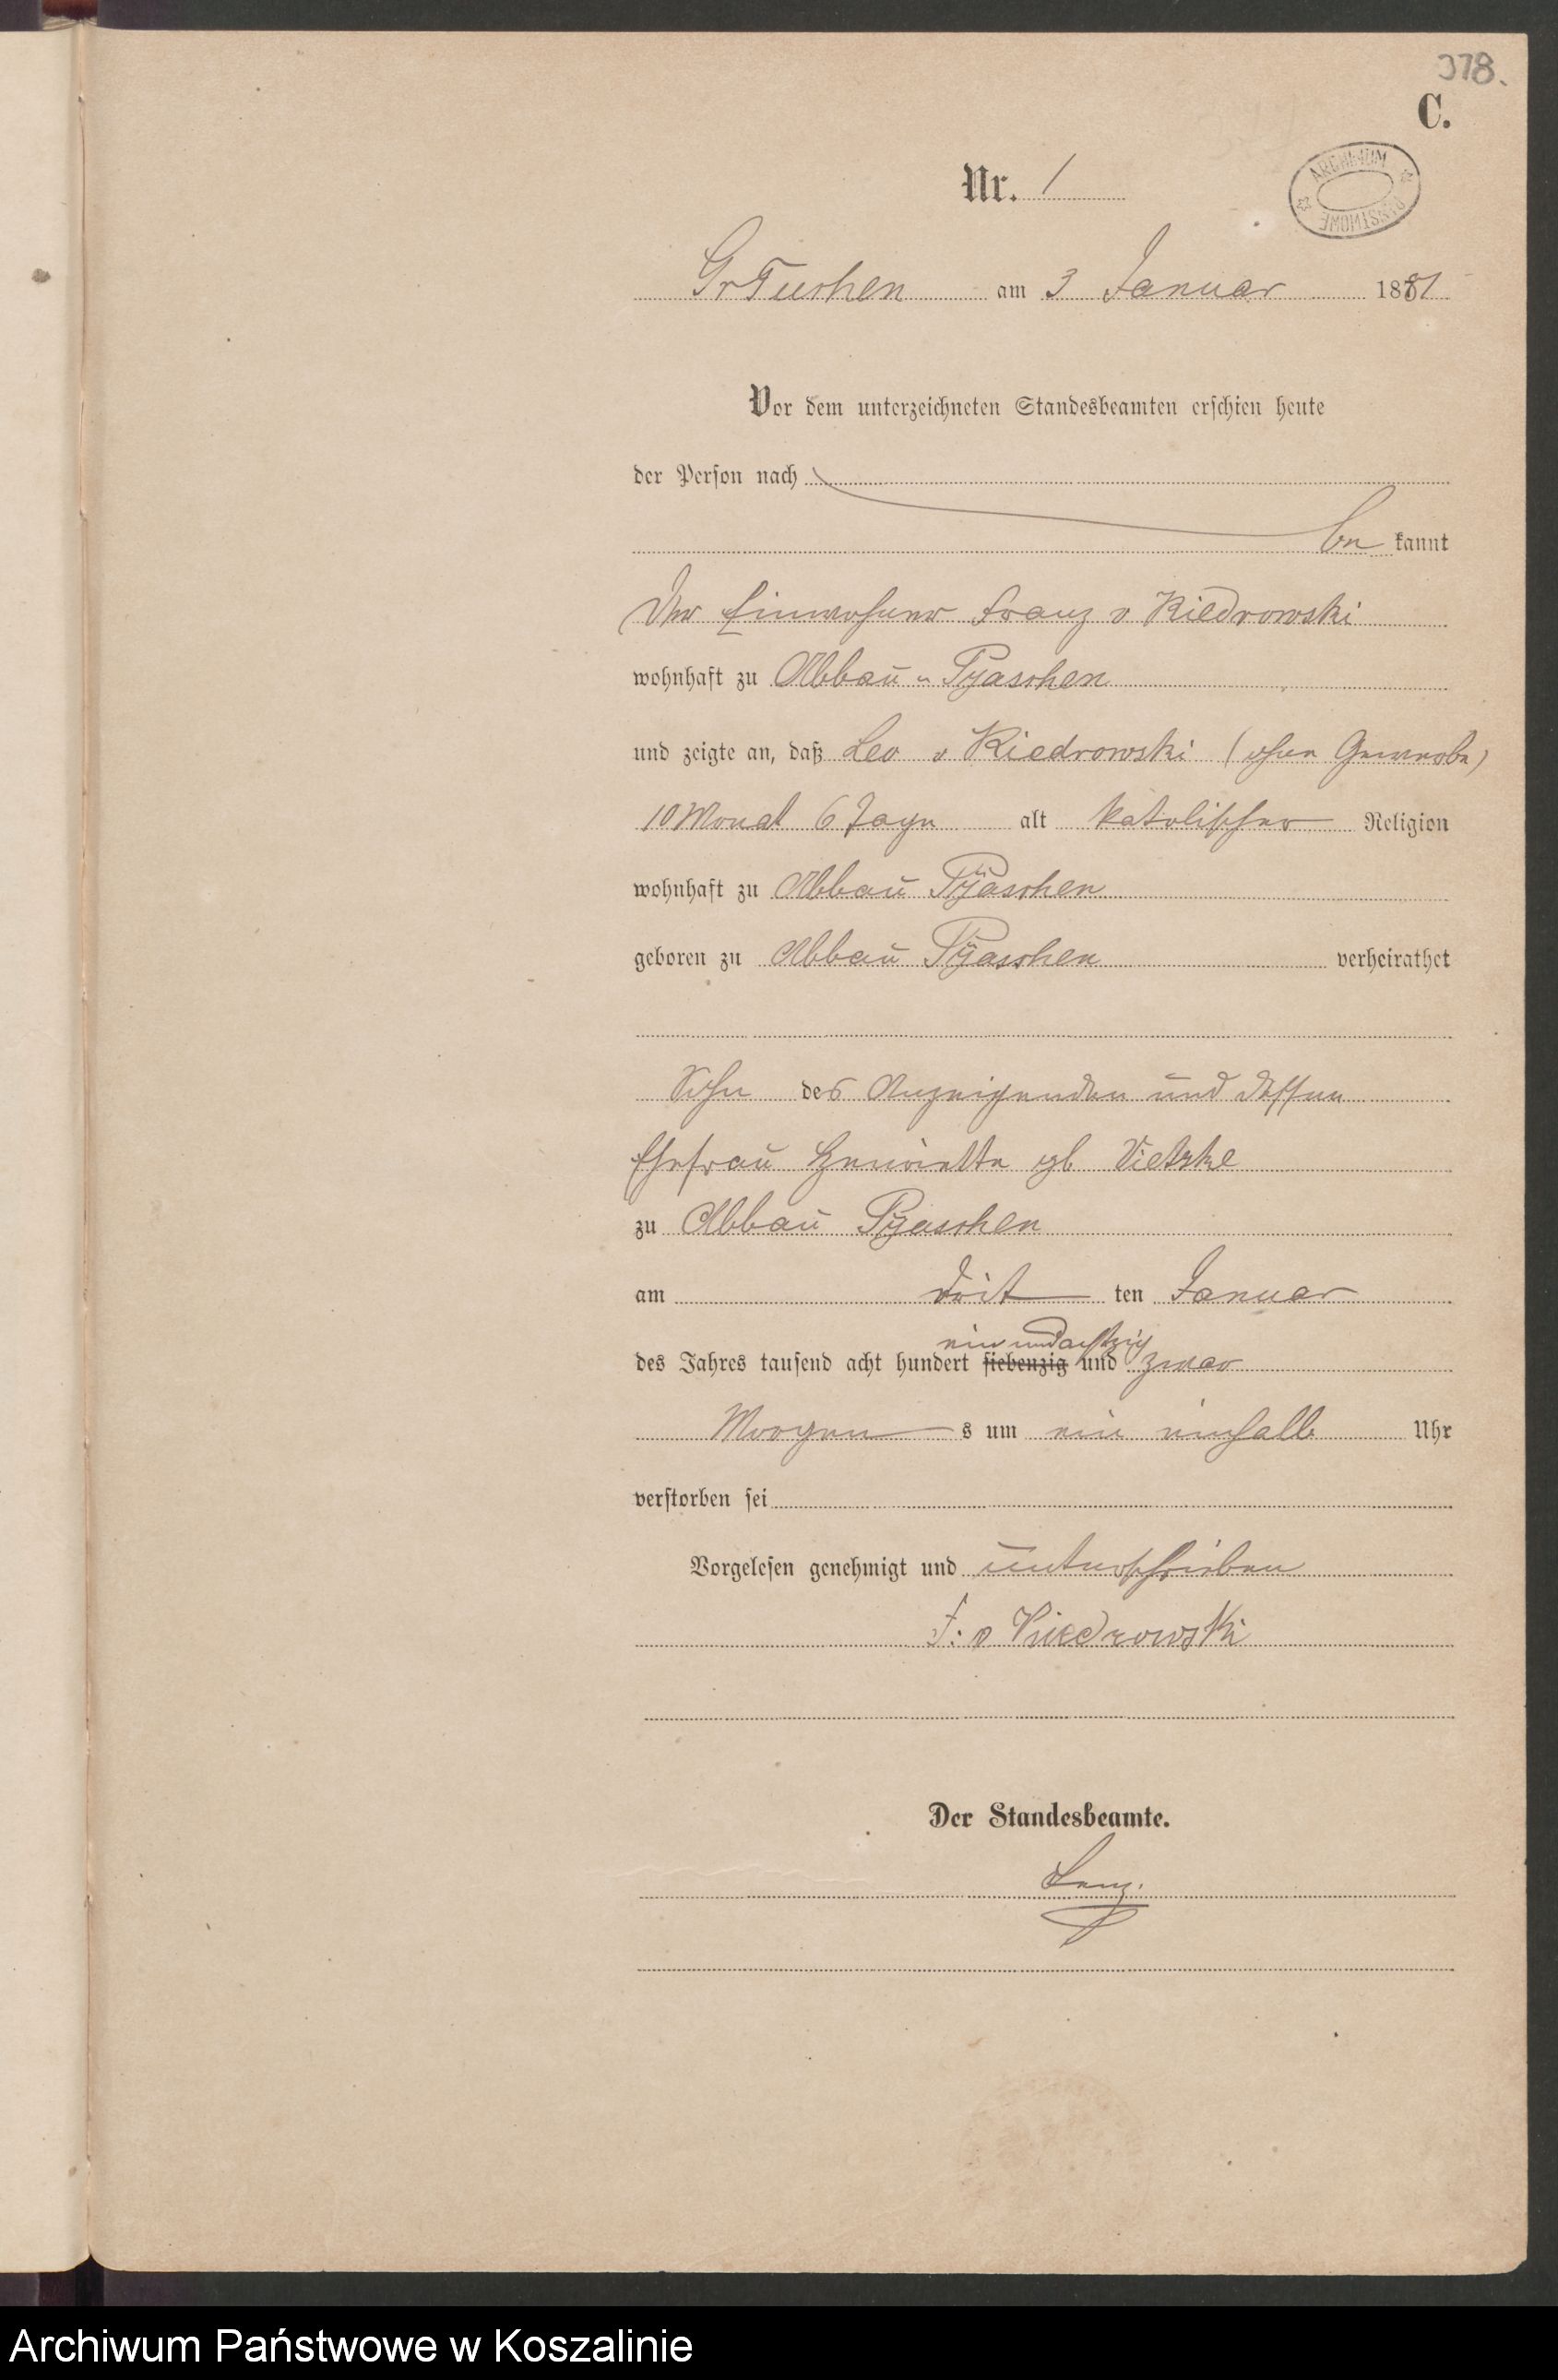 378.
C.
ARCHIWUM PAŃSTWOWE
Nr. 1
Gr Tuchen am 3 Januar 1881
Vor dem unterzeichneten Standesbeamten erschien heute
der Person nach
be kannt
Der Einwohner Franz v Kiedrowski
wohnhaft zu Abbau - Pyaschen
und zeigte an, daß Leo v Kiedrowski (ohne Gewerbe)
10 Monat 6 Tage alt katolischer Religion
wohnhaft zu Abbau Pyaschen
geboren zu Abbau Pyaschen verheirathet
Sohn des Anzeigenden und dessen
Ehefrau Henriette gb Vietzke
zu Abbau Pyaschen
am drit ten Januar
ein und achtzig
des Jahres tausend acht hundert siebenzig und zwar
Morgen s um ein einhalb Uhr
verstorben sei
Vorgelesen genehmigt und unterschrieben
F. v Kiedrowski
Der Standesbeamte.
Lenz.
Archiwum Państwowe w Koszalinie